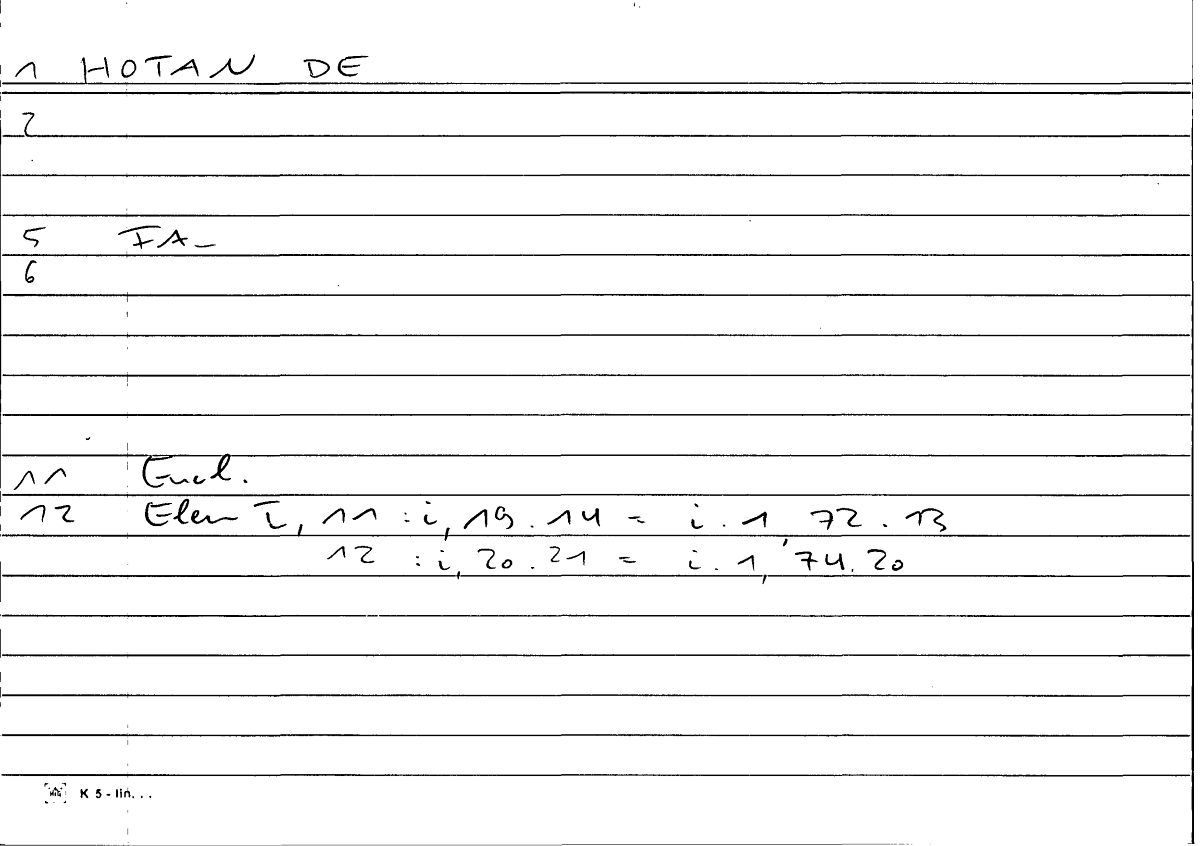 1 HOTAN DE
2
5 FA_
6
11 Eucl.
12 Elem I, 11 : i, 19. 14 = i. 1, 72. 13
12 : i, 20. 21 = i. 1, 74. 20
K 5 - lin. . .